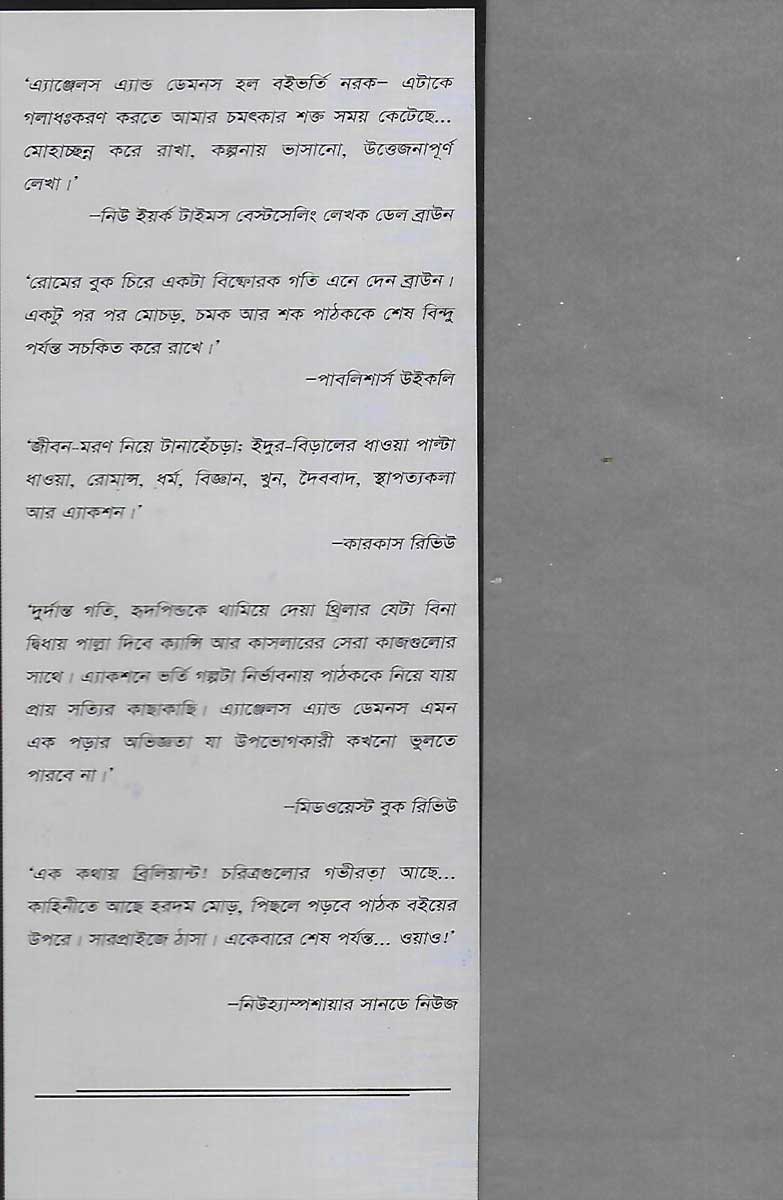 ‘এ্যাঞ্জেলস এ্যান্ড ডেমনস হল বইভর্তি নরক– এটাকে
গলাধঃকরণ করতে আমার চমৎকার শক্ত সময় কেটেছে...
মোহাচ্ছন্ন করে রাখা, কল্পনায় ভাসানো, উত্তেজনাপূর্ণ
লেখা।’
–নিউ ইয়র্ক টাইমস বেস্টসেলিং লেখক ডেল ব্রাউন
‘রোমের বুক চিরে একটা বিস্ফোরক গতি এনে দেন ব্রাউন।
একটু পর পর মোচড়, চমক আর শক পাঠককে শেষ বিন্দু
পর্যন্ত সচকিত করে রাখে।’
–পাবলিশার্স উইকলি
‘জীবন-মরণ নিয়ে টানাহেঁচড়া; ইদুর-বিড়ালের ধাওয়া পাল্টা
ধাওয়া, রোমান্স, ধর্ম, বিজ্ঞান, খুন, দৈববাদ, স্থাপত্যকলা
আর এ্যাকশন।’
–কারকাস রিভিউ
‘দুর্দান্ত গতি, হৃদপিন্ডকে থামিয়ে দেয়া থ্রিলার যেটা বিনা
দ্বিধায় পাল্লা দিবে ক্যান্সি আর কাসলারের সেরা কাজগুলোর
সাথে। এ্যাকশনে ভর্তি গল্পটা নির্ভাবনায় পাঠককে নিয়ে যায়
প্রায় সত্যির কাছাকাছি। এ্যাঞ্জেলস এ্যান্ড ডেমনস এমন
এক পড়ার অভিজ্ঞতা যা উপভোগকারী কখনো ভুলতে
পারবে না।’
–মিডওয়েস্ট বুক রিভিউ
‘এক কথায় ব্রিলিয়ান্ট! চরিত্রগুলোর গভীরতা আছে...
কাহিনীতে আছে হরদম মোড়, পিছলে পড়বে পাঠক বইয়ের
উপরে। সারপ্রাইজে ঠাসা। একেবারে শেষ পর্যন্ত... ওয়াও!’
–নিউহ্যাম্পশায়ার সানডে নিউজ